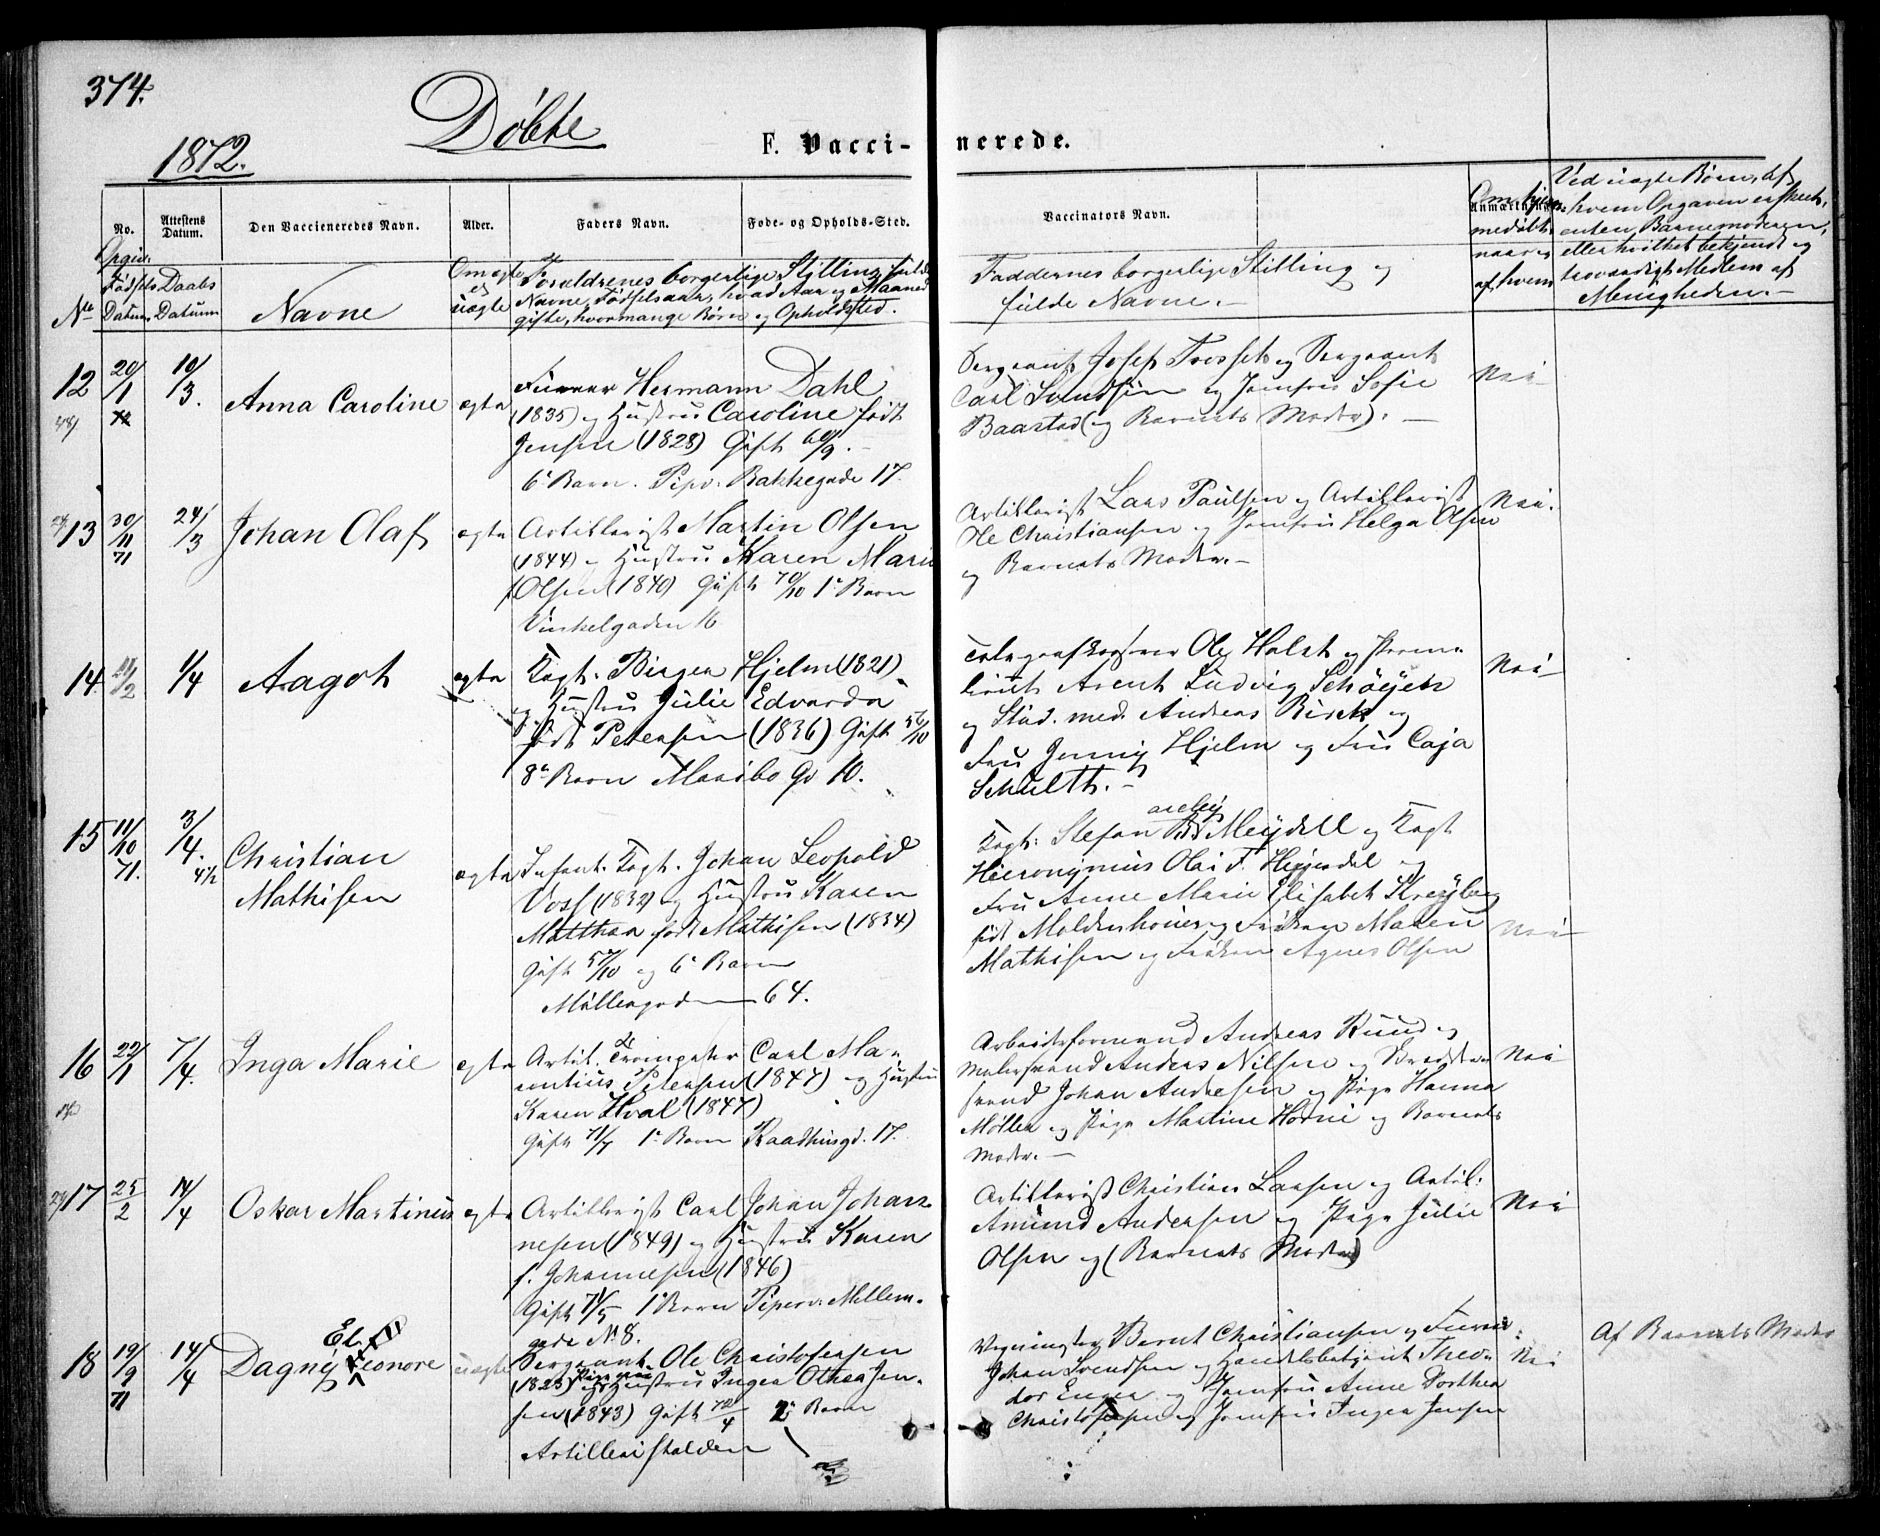 374.
Døbte
1872.
F. Vacci- nerede.
No.
Attestens Datum.
Den Vaccieneredes Navn.
Alder.
Faders Navn.
Føde- og Opholds-Sted.
Vaccinators Navn.
Ved uægte Børn, af
hvem Opgaven er skeet,
enten Barnemoderen,
eller hvilket bekjendt og
troværdigt Medlem af
Menigheden.-
No
Fødsels Datum
Daabs Datum
Navne
Om ægte
uægte
Forældrenes borgerlige Stilling, fulde
Navne, Fødselsaar, hvad Aar og Maaned
gifte, hvormange Børn og Opholdsted.
Faddernes borgerlige Stilling og
fulde Navne.-
medøbt
naar og
af hvem
12 20/1 10/3. Anna Caroline ægte
Fureer Hermann Dahl
(1835) og Hustru Caroline født
Jensen (1828) Gift 60/9.-
6t Barn. Piperv. Bakkegade 17.
Sergeant Josef og Sergeant
Carl Svendsen og Jomfru Sofie
Baastad (og Barnets Moder).-
Nei
13 30/11 71 24/3 Johan Olaf ægte
Artillerist Martin Olsen
(1844) og Hustru Karen Marie
f. Olsen (1840) Gift 70/10 1t Barn
Vinkelgaden 16
Artillerist Lars Paulsen og Artillerist
Ole Christiansen og Jomfru Helga Olsen
og Barnets Moder.-
Nei.
14. 11/2 1/4 Aagot ægte
Kapt. Birger Hjelm (1821)
og Hustru Julie Edvarda
født Petersen (1836) Gift 56/10
8t Barn Maribo Gd 10.
Ole Holst og
Arent Ludvig Schøyen
og Stud. med. Andreas Birch og
Fru Jenny Hjelm og Fru Caja
Schulth.-
Nei
15 11/10 71. 3/4. 4 1/2 Christian
Mathisen
ægte
Infant. Kapt. Johan Leopold
Voss (1832) og Hustru Karen
Matthea født Mathisen (1834)
Gift 57/10 og 6t Barn
Møllergaden 64.
Kapt. Stefan Meydell og Kapt
Hieronymus Olai F. Heyerdal og
Fru Anne Marie Elisabet Kreyberg
født Moldenhouer og Frøken Maren
Mathisen og Frøken Agnes Olsen
Nei
16 22/1 7/4. Inga Marie ægte
Artil. Trompeter Carl Ma-
Petersen (1847) og Hustru
Karen Hval (1847)
Gift 71/7 1t Barn Raadhusgd. 17.
Arbeidsformand Andreas Ruud og
Malersvend Anders Nilsen og
svend Johan Andresen og Pige Hanna
Møller og Pige Martine Hornie og Barnets
Moder.-
Nei
17 25/2 14/4 Oskar Martinus ægte
Artillerist Carl Johan Johan-
nesen (1849) og Hustru Karen
f. Johannesen (1846)
Gift 71/5 1t Barn Piperv. Mellem-
gade No 8.
Artillerist Christian Larsen og Artil.
Amund Andersen og Pige Julie
Olsen og (Barnets Moder)
Nei
18 19/9 71 14/4 Dagny Eleonore uægte
Sergeant Ole Christofersen
(1823) og Hustru Inger Othea Jen-
sen (1843) Gift 72/4 2t Barn
Artilleristalden
Bernt Christiansen og Fureer
Johan Svendsen og Handelsbetjent Theo-
dor Enger og Jomfru Anne Dorthea
Christofersen og Jomfru Inger Jensen
Nei
Af Barnets Moder